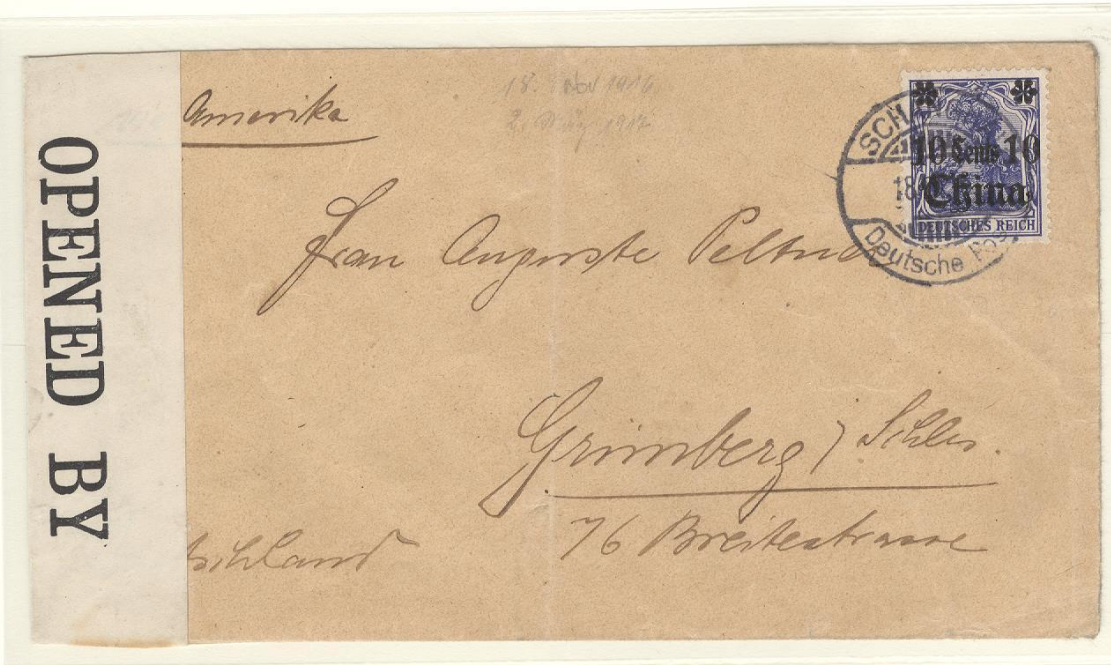 OPENED BY
Amerika
18. Nov 1916
1917
SCH
10 Cents 10
China
18.
DEUTSCHES REICH
Deutsche Pos
Frau Auguste
Grünberg / Schles.
76 Breitestrasse
tschland